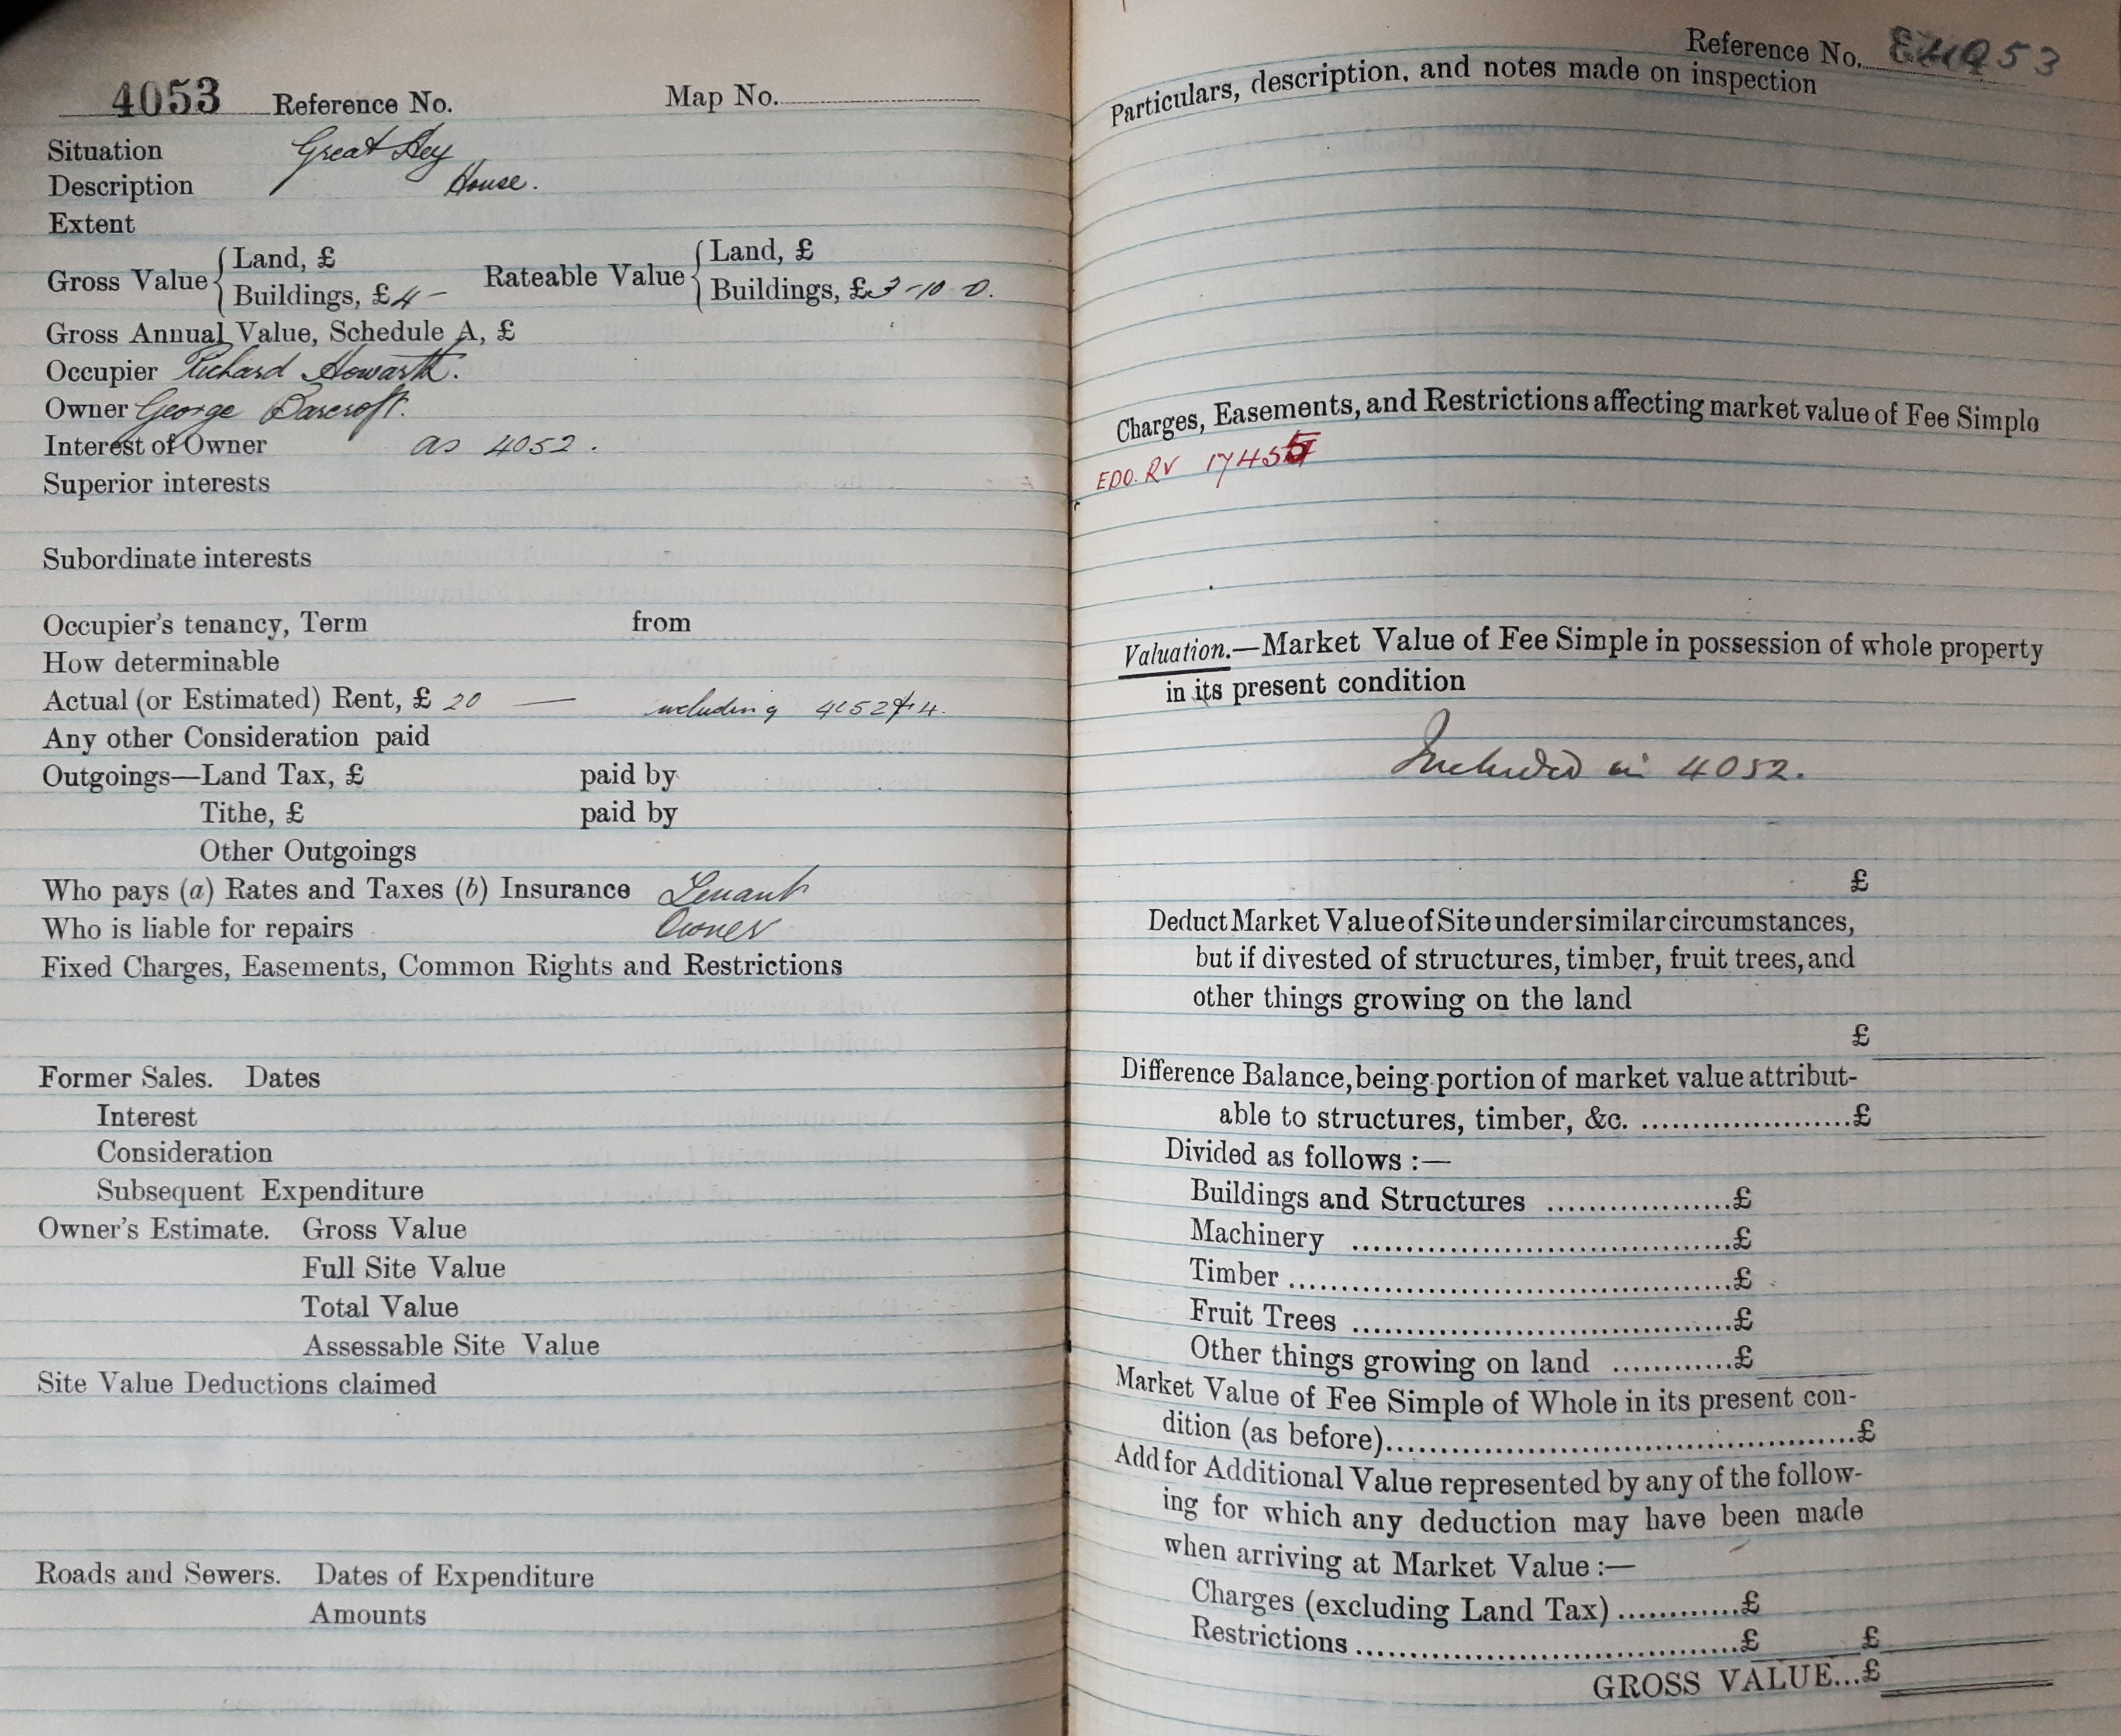 4053 Reference No. Map No.
Situation Great Hey
Description House.
Extent
Gross Value { Land, £
Buildings, £ 4 - Rateable Value { Land, £
Buildings, £ 3-10-0.
Gross Annual Value, Schedule A, £
Occupier Richard Howarth.
Owner George Barcroft.
Interest of Owner as 4052.
Superior interests
Subordinate interests
Occupier's tenancy, Term from
How determinable
Actual (or Estimated) Rent, £ 20 — including 4052 & 4.
Any other Consideration paid
Outgoings—Land Tax, £ paid by
Tithe, £ paid by
Other Outgoings
Who pays (a) Rates and Taxes (b) Insurance Tenant
Who is liable for repairs Owner
Fixed Charges, Easements, Common Rights and Restrictions
Former Sales. Dates
Interest
Consideration
Subsequent Expenditure
Owner's Estimate. Gross Value
Full Site Value
Total Value
Assessable Site Value
Site Value Deductions claimed
Roads and Sewers. Dates of Expenditure
Amounts
Reference No. 4053
Particulars, description, and notes made on inspection
Charges, Easements, and Restrictions affecting market value of Fee Simple
EDO. RV 17455
Valuation.—Market Value of Fee Simple in possession of whole property
in its present condition
Included in 4052.
£
Deduct Market Value of Site under similar circumstances,
but if divested of structures, timber, fruit trees, and
other things growing on the land
£
Difference Balance, being portion of market value attribut-
able to structures, timber, &c. ......................£
Divided as follows :—
Buildings and Structures ...................£
Machinery ......................................£
Timber ............................................£
Fruit Trees ......................................£
Other things growing on land ............£
Market Value of Fee Simple of Whole in its present con-
dition (as before)................................................£
Add for Additional Value represented by any of the follow-
ing for which any deduction may have been made
when arriving at Market Value :—
Charges (excluding Land Tax) ............£
Restrictions ......................................£ £
GROSS VALUE...£